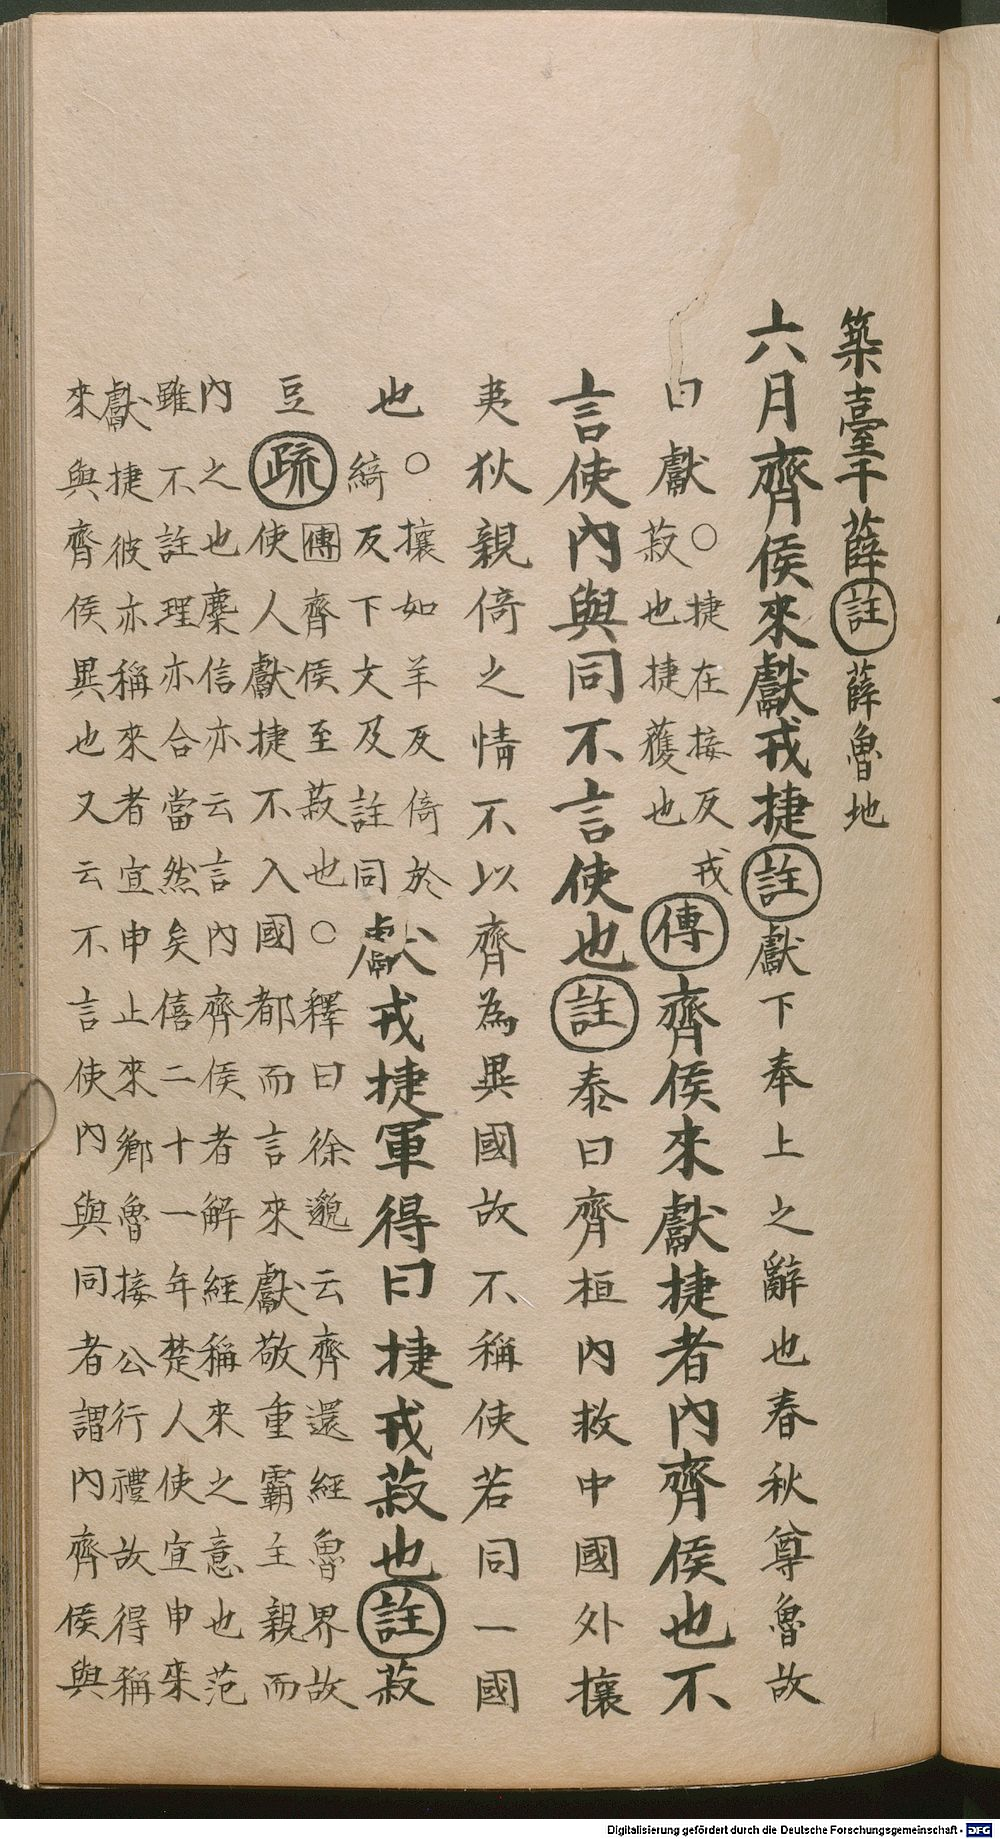 築臺于薛註薛魯地
六月齊侯來獻戎捷註獻下奉上之辭也春秋尊魯故
曰獻○捷在接反
菽也捷獲也
戎傳齊侯來獻捷者內齊侯也不
言使內與同不言使也註泰曰齊桓內救中國外攘
夷狄親倚之情不以齊為異國故不稱使若同一國
也○攘如羊反倚於
綺反下文及註同
獻戎捷軍得曰捷戎菽也註菽
豆疏
傳齊侯至菽也○釋曰徐邈云齊還經魯界故
使人獻捷不入國都而言來獻敬重霸主親而
內之也麋信亦云言內齊侯者解經稱來之意也范
雖不註理亦合當然矣僖二十一年楚人使宜申來
獻捷彼亦稱來者宜申止來鄉魯接公行禮故得稱
來與齊侯異也又云不言使內與同者謂內齊侯與
Digitalisierung gefördert durch die Deutsche Forschungsgemeinschaft - DFG